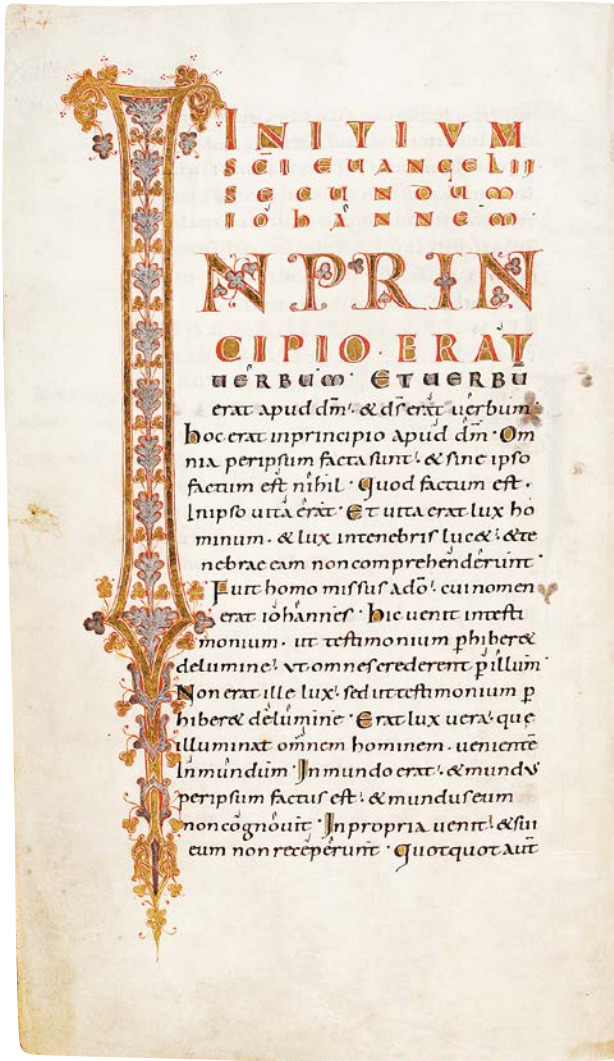 INITIUM
SCI EUANGELII
SECUNDUM
IOHANNEM
IN PRIN
CIPIO · ERAT
UERBUM · ET UERBU
erat apud dm̄ · & ds̄ erat uerbum ·
hoc erat inprincipio apud dm̄ · Om
nia peripsum facta sunt · & sine ipso
factum est nihil · Quod factum est ·
Inipso uita erat · Et uita erat lux ho
minum · & lux intenebris luc& · & te
nebrae eam noncomprehenderunt ·
Fuit homo missus adō · cui nomen
erat iohannes · hic uenit intesti
monium · ut testimonium p̄hiber&
delumine · Vt omnes crederent p̄ illum ·
Non erat ille lux · sed ut testimonium p̄
hiber& de lumine · Erat lux uera · que
illuminat omnem hominem · uenientē
Inmundum · Inmundo erat · & mundus
peripsum factus est · & mundus eum
noncognouit · Inpropria uenit · & sui
eum non receperunt · Quotquot aut̄